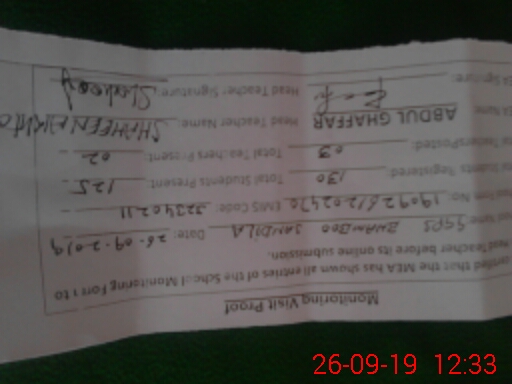 Monitoring Visit Proof
certified that the MEA has shown all entries of the School Monitoring Form to
Head Teacher before its online submission.
GGPS BHAMBOO SANDILA Date: 26-09-2019
No: EMIS Code:
Students Registered: 130 Total Students Present: 125
Teachers Posted: 03 Total Teachers Present: 02
MEA Name: ABDUL GHAFFAR Head Teacher Name: SHAHEEN AKHTAR
MEA Signature: Head Teacher Signature:
26-09-19 12:33